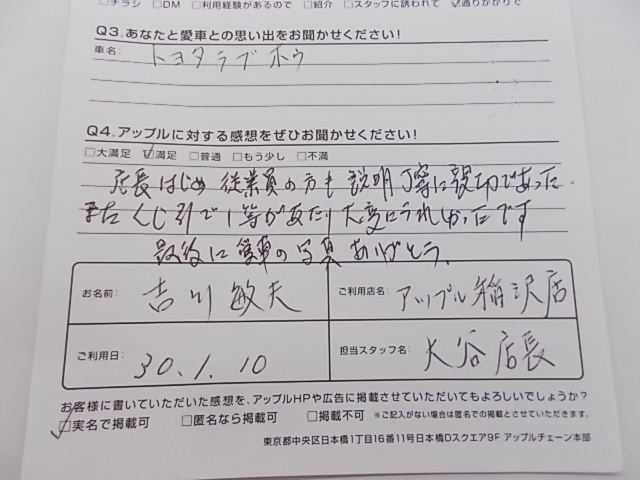 □チラシ □DM □利用経験があるので □紹介 □スタッフに誘われて ☑通りがかりで
Q3.あなたと愛車との思い出をお聞かせください!
車名: トヨタラブホウ
Q4.アップルに対する感想をぜひお聞かせください!
□大満足 ☑満足 □普通 □もう少し □不満
店長はじめ従業員の方も説明丁寧に親切であった
また くじ引で1等があたり大変にうれしかったです
最後に愛車の写真ありがとう。
お名前: 吉川敏夫 ご利用店名: アップル稲沢店
ご利用日: 30.1.10 担当スタッフ名: 大谷店長
お客様に書いていただいた感想を、アップルHPや広告に掲載させていただいてもよろしいでしょうか?
☑実名で掲載可 □匿名なら掲載可 □掲載不可 ※ご記入がない場合は匿名での掲載とさせていただきます。
東京都中央区日本橋1丁目16番11号日本橋Dスクエア9F アップルチェーン本部